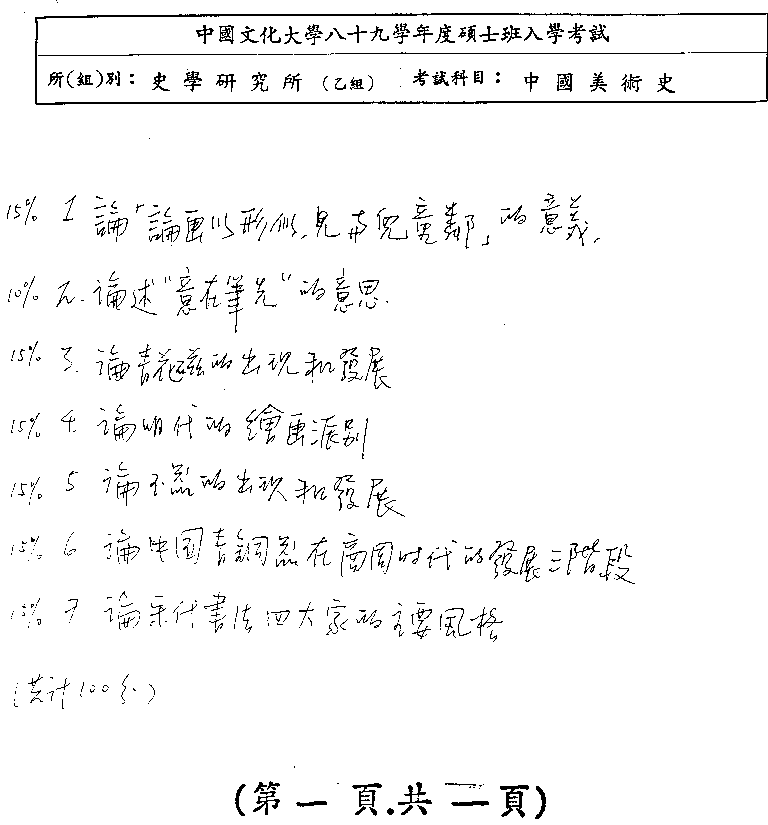 中國文化大學八十九學年度碩士班入學考試
所(組)別：史學研究所（乙組） 考試科目：中國美術史
15% 1 論「論画以形似，見与兒童鄰」的意義，
10% 2. 論述"意在筆先"的意思.
15% 3. 論青花磁的出現和發展
15% 4. 論明代的繪画派別
15% 5 論玉器的出現和發展
15% 6 論中国青銅器在商周时代的發展三階段
15% 7 論宋代書法四大家的主要風格
(共计100分)
(第一頁.共一頁)